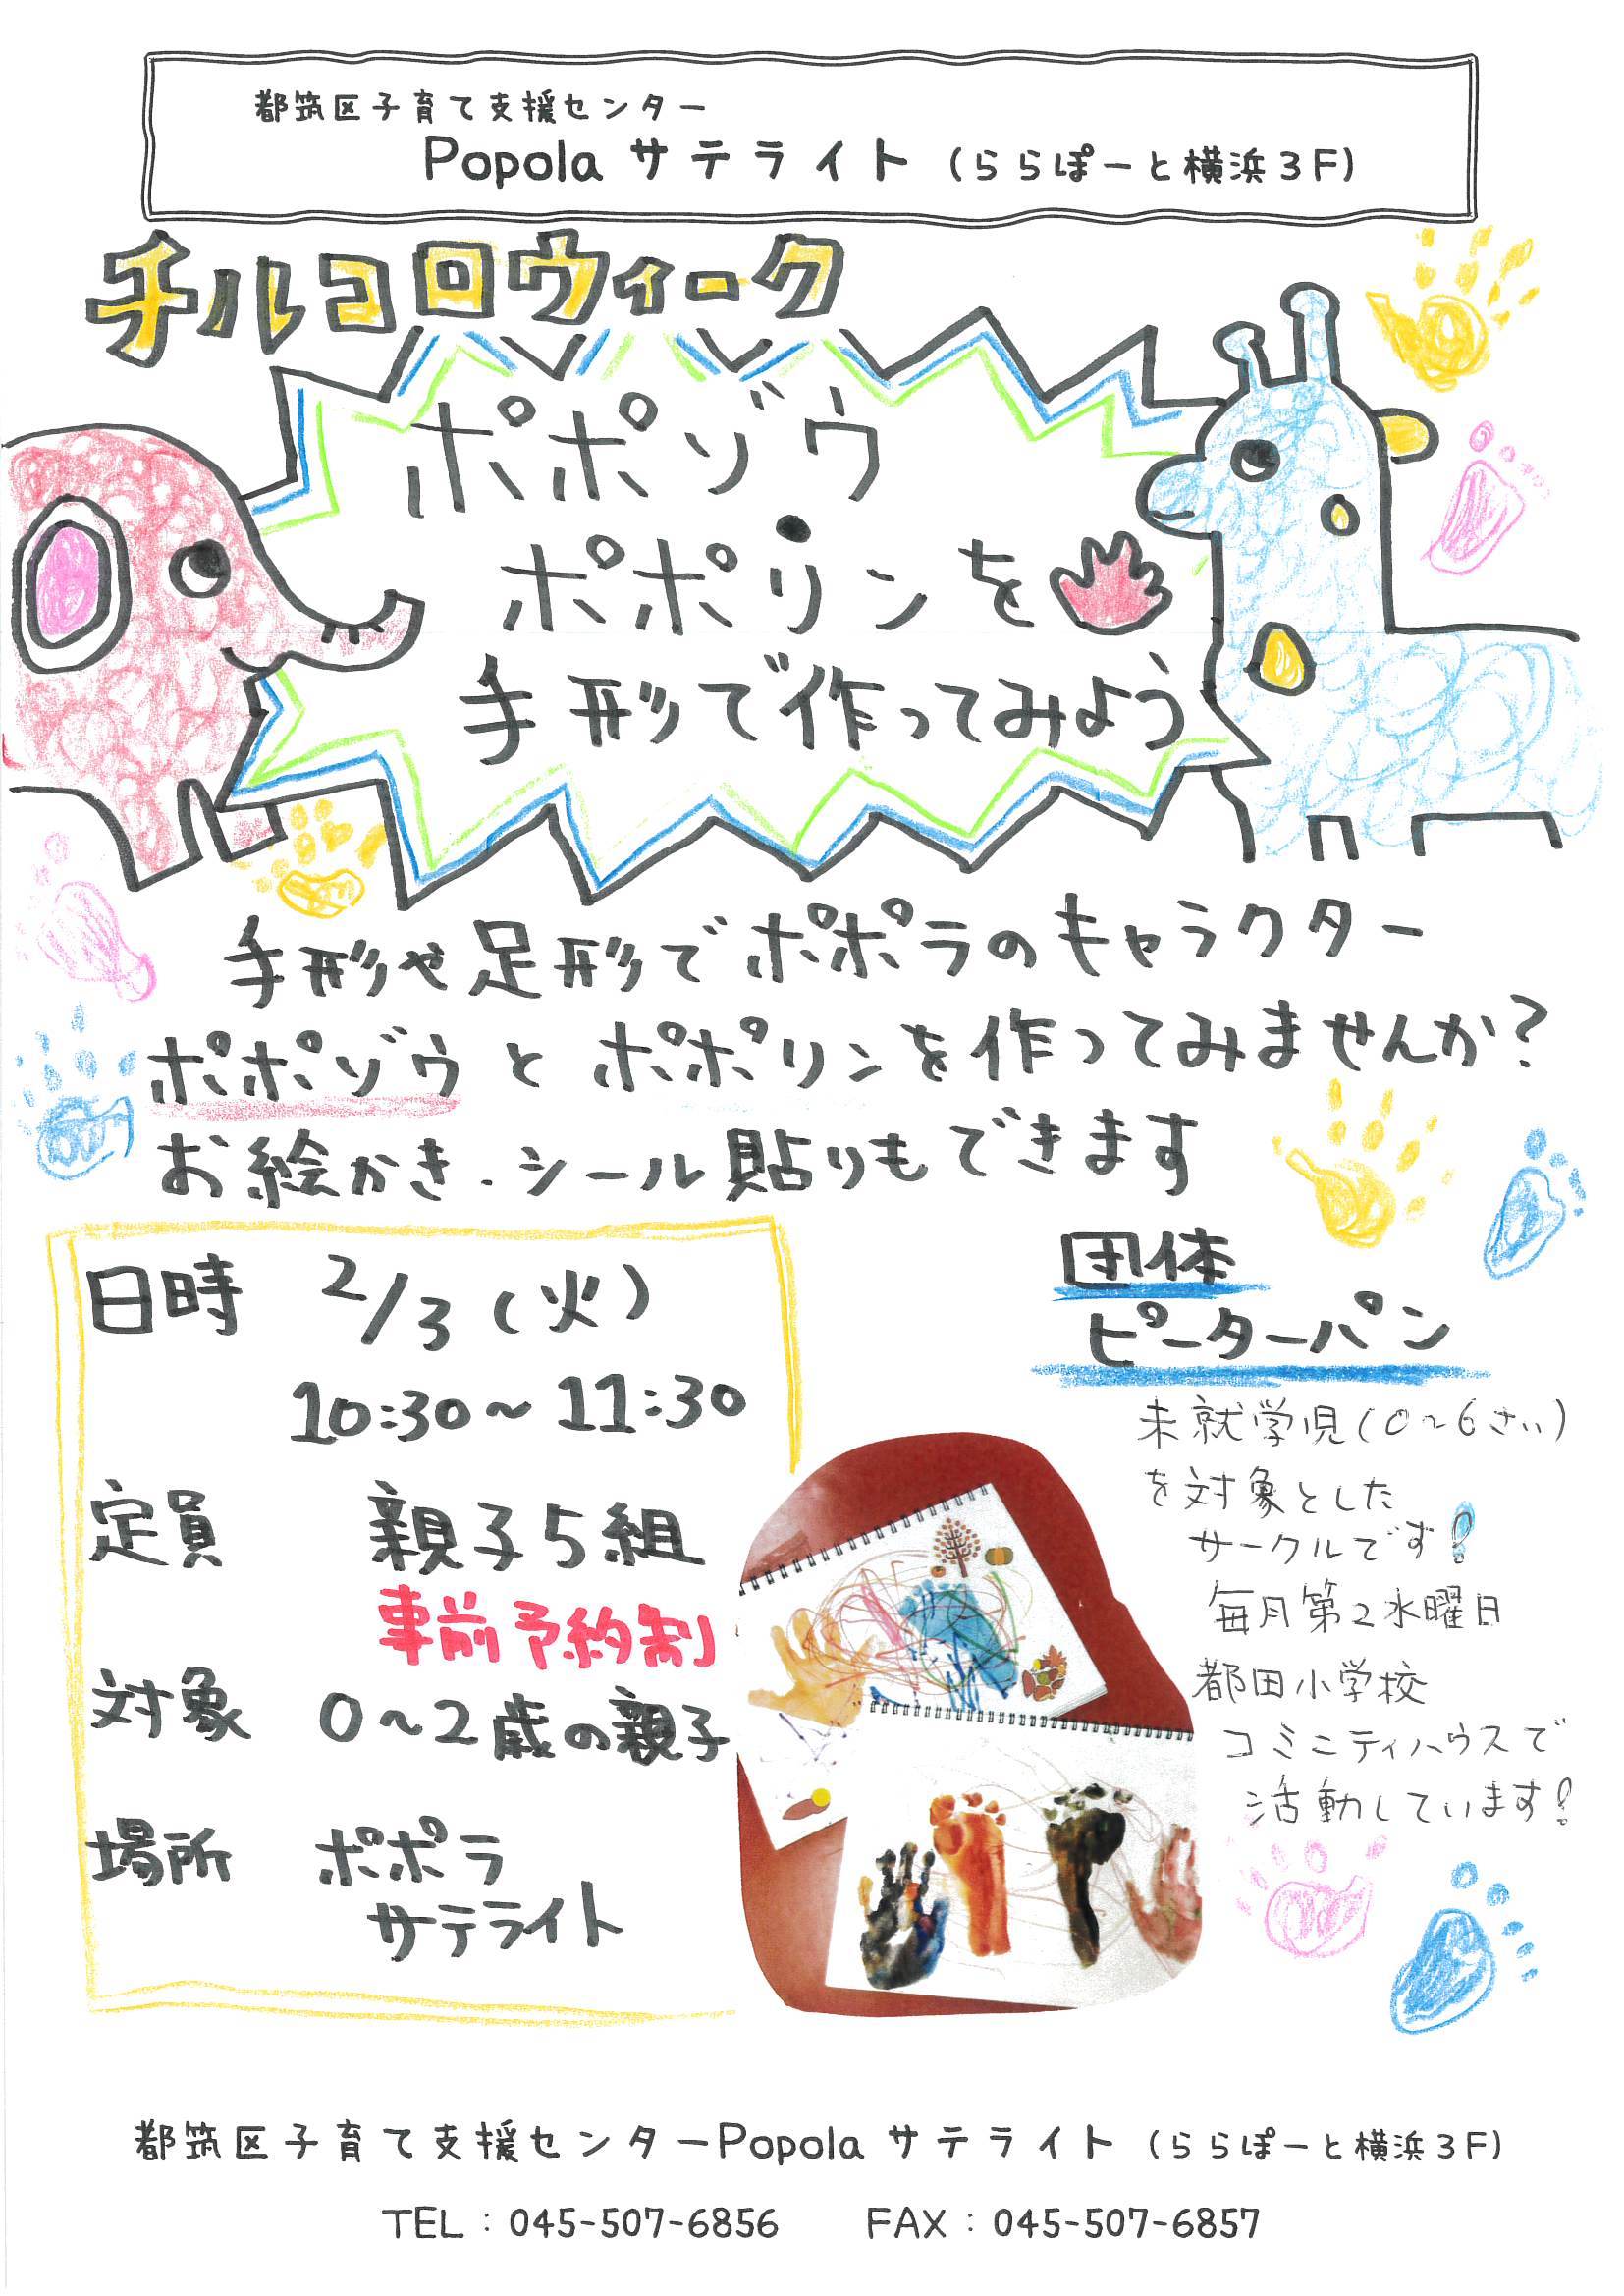 都筑区子育て支援センター
Popola サテライト (ららぽーと横浜3F)
チルコロウィーク
ポポゾウ
ポポリンを
手形で作ってみよう
手形や足形でポポラのキャラクター
ポポゾウとポポリンを作ってみませんか?
お絵かき、シール貼りもできます
日時 2/3(火)
10:30~11:30
定員 親子5組
事前予約制
対象 0~2歳の親子
場所 ポポラ
サテライト
団体
ピーターパン
未就学児(0~6さい)
を対象とした
サークルです!
毎月第2水曜日
都田小学校
コミニティハウスで
活動しています!
都筑区子育て支援センターPopola サテライト (ららぽーと横浜3F)
TEL:045-507-6856 FAX:045-507-6857